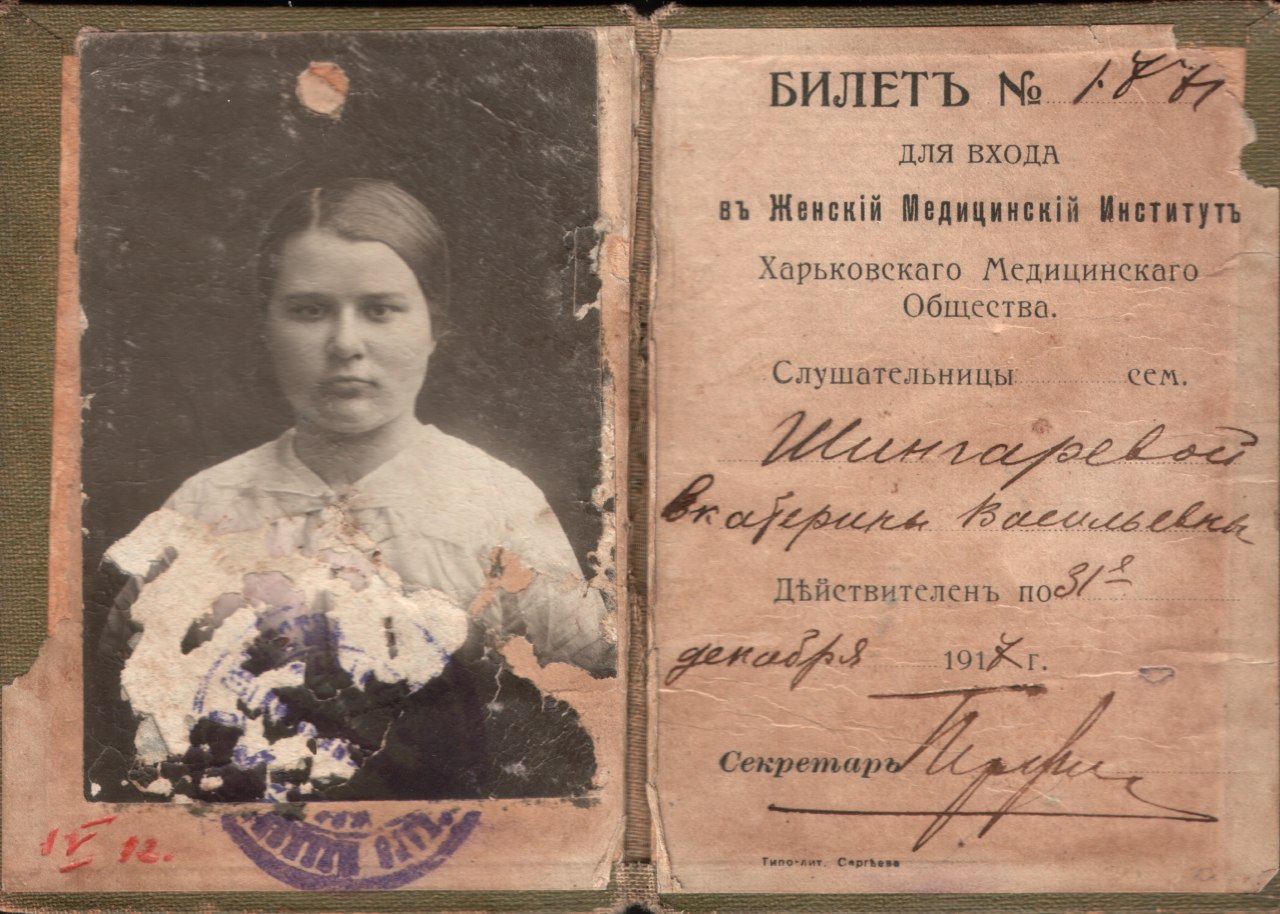 БИЛЕТЪ № 1771
ДЛЯ ВХОДА
въ Женскій Медицинскій Институтъ
Харьковскаго Медицинскаго
Общества.
Слушательницы сем.
Шингаревой
Екатерины Васильевны
Дѣйствителенъ по 31е
декабря 1917 г.
Секретарь
Типо-лит. Сергѣева
IV 12.